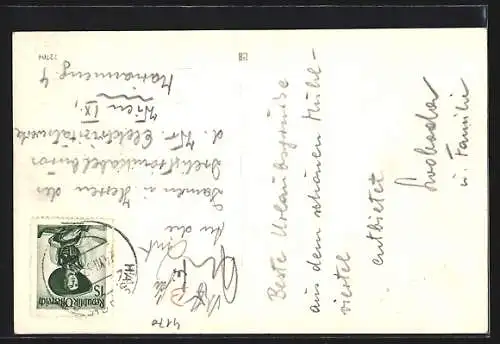 Beste Urlaubsgrüße
aus dem schönen Mühl-
viertel
entbietet
Swoboda
u. Familie
An die
Damen u. Herren des
Drehstromkabelbüros
d. Wr. Elektrizitätswerke
Wien IX,
Marianneng. 4
Republik Österreich
1S
4170